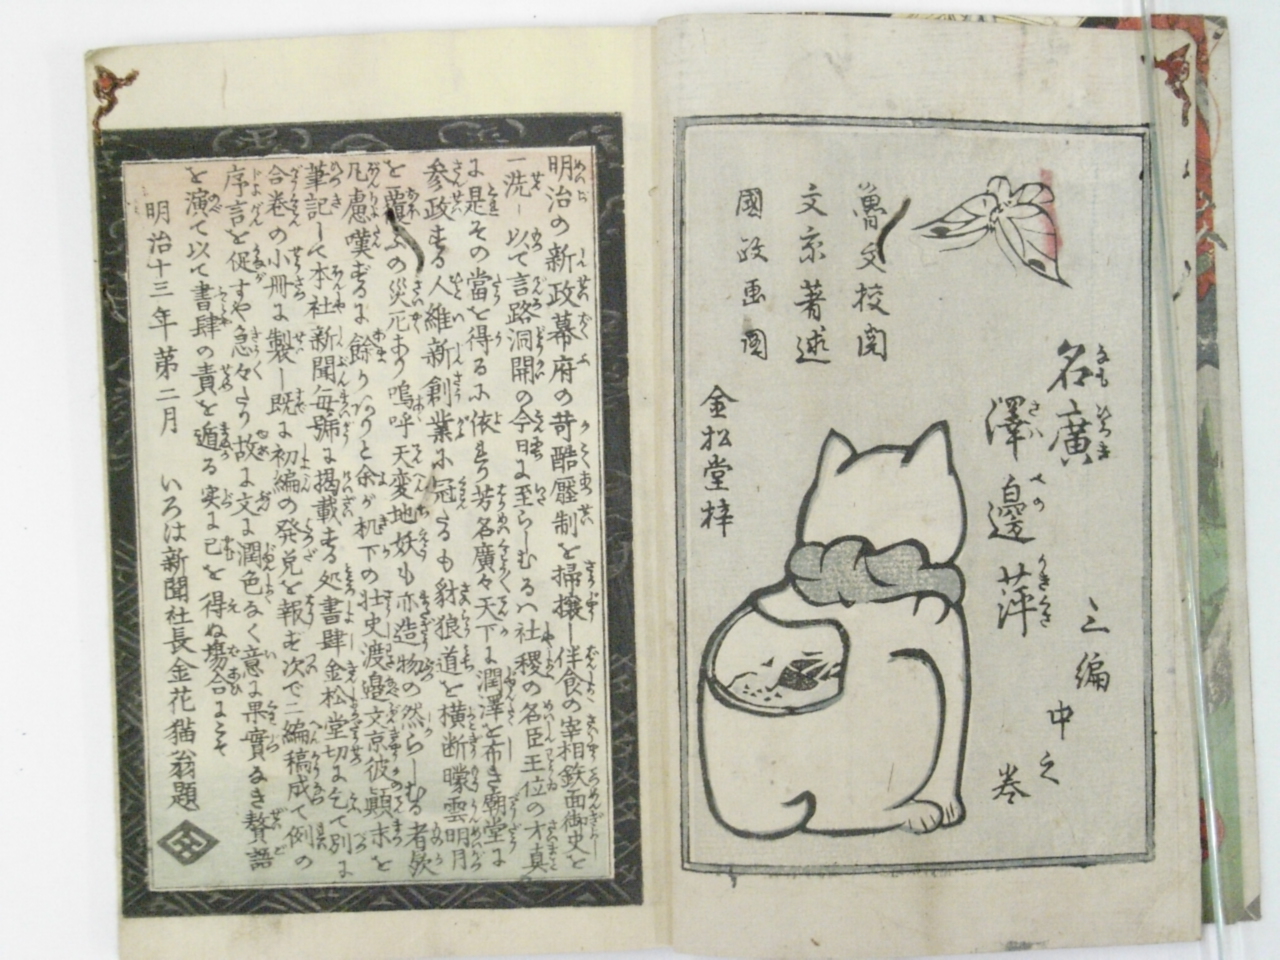 名廣
澤邊
萍
三編
中之
巻
魯文校閲
文京著述
國政画圖
金松堂梓
明治の新政幕府の苛酷壓制を掃攘し伴食の宰相鉄面御史を
一洗し以て言路洞開の今曙に至らしむるハ社稷の名臣王位の才真
に是その當を得るに依ま芳名廣々天下に潤澤を布き廟堂に
参政する人維新創業に冠たるも豺狼道を横断曚雲明月
を覆ふの災厄あり嗚呼天変地妖も亦造物の然らしむる者歟
凡慮嘆ずるに餘りありと余が机下の壮史渡邉文京彼顛末を
筆記して本社新聞毎號に掲載する処書肆金松堂切に乞て別に
合巻の小冊に製し既に初編の発兌を報ず次で二編稿成て例の
序言を促すや急々たり故に文に潤色なく意に果實なき贅語
を演て以て書肆の責を遁る実に已を得ぬ場合にこそ
明治十三年第二月　いろは新聞社長金花猫翁題